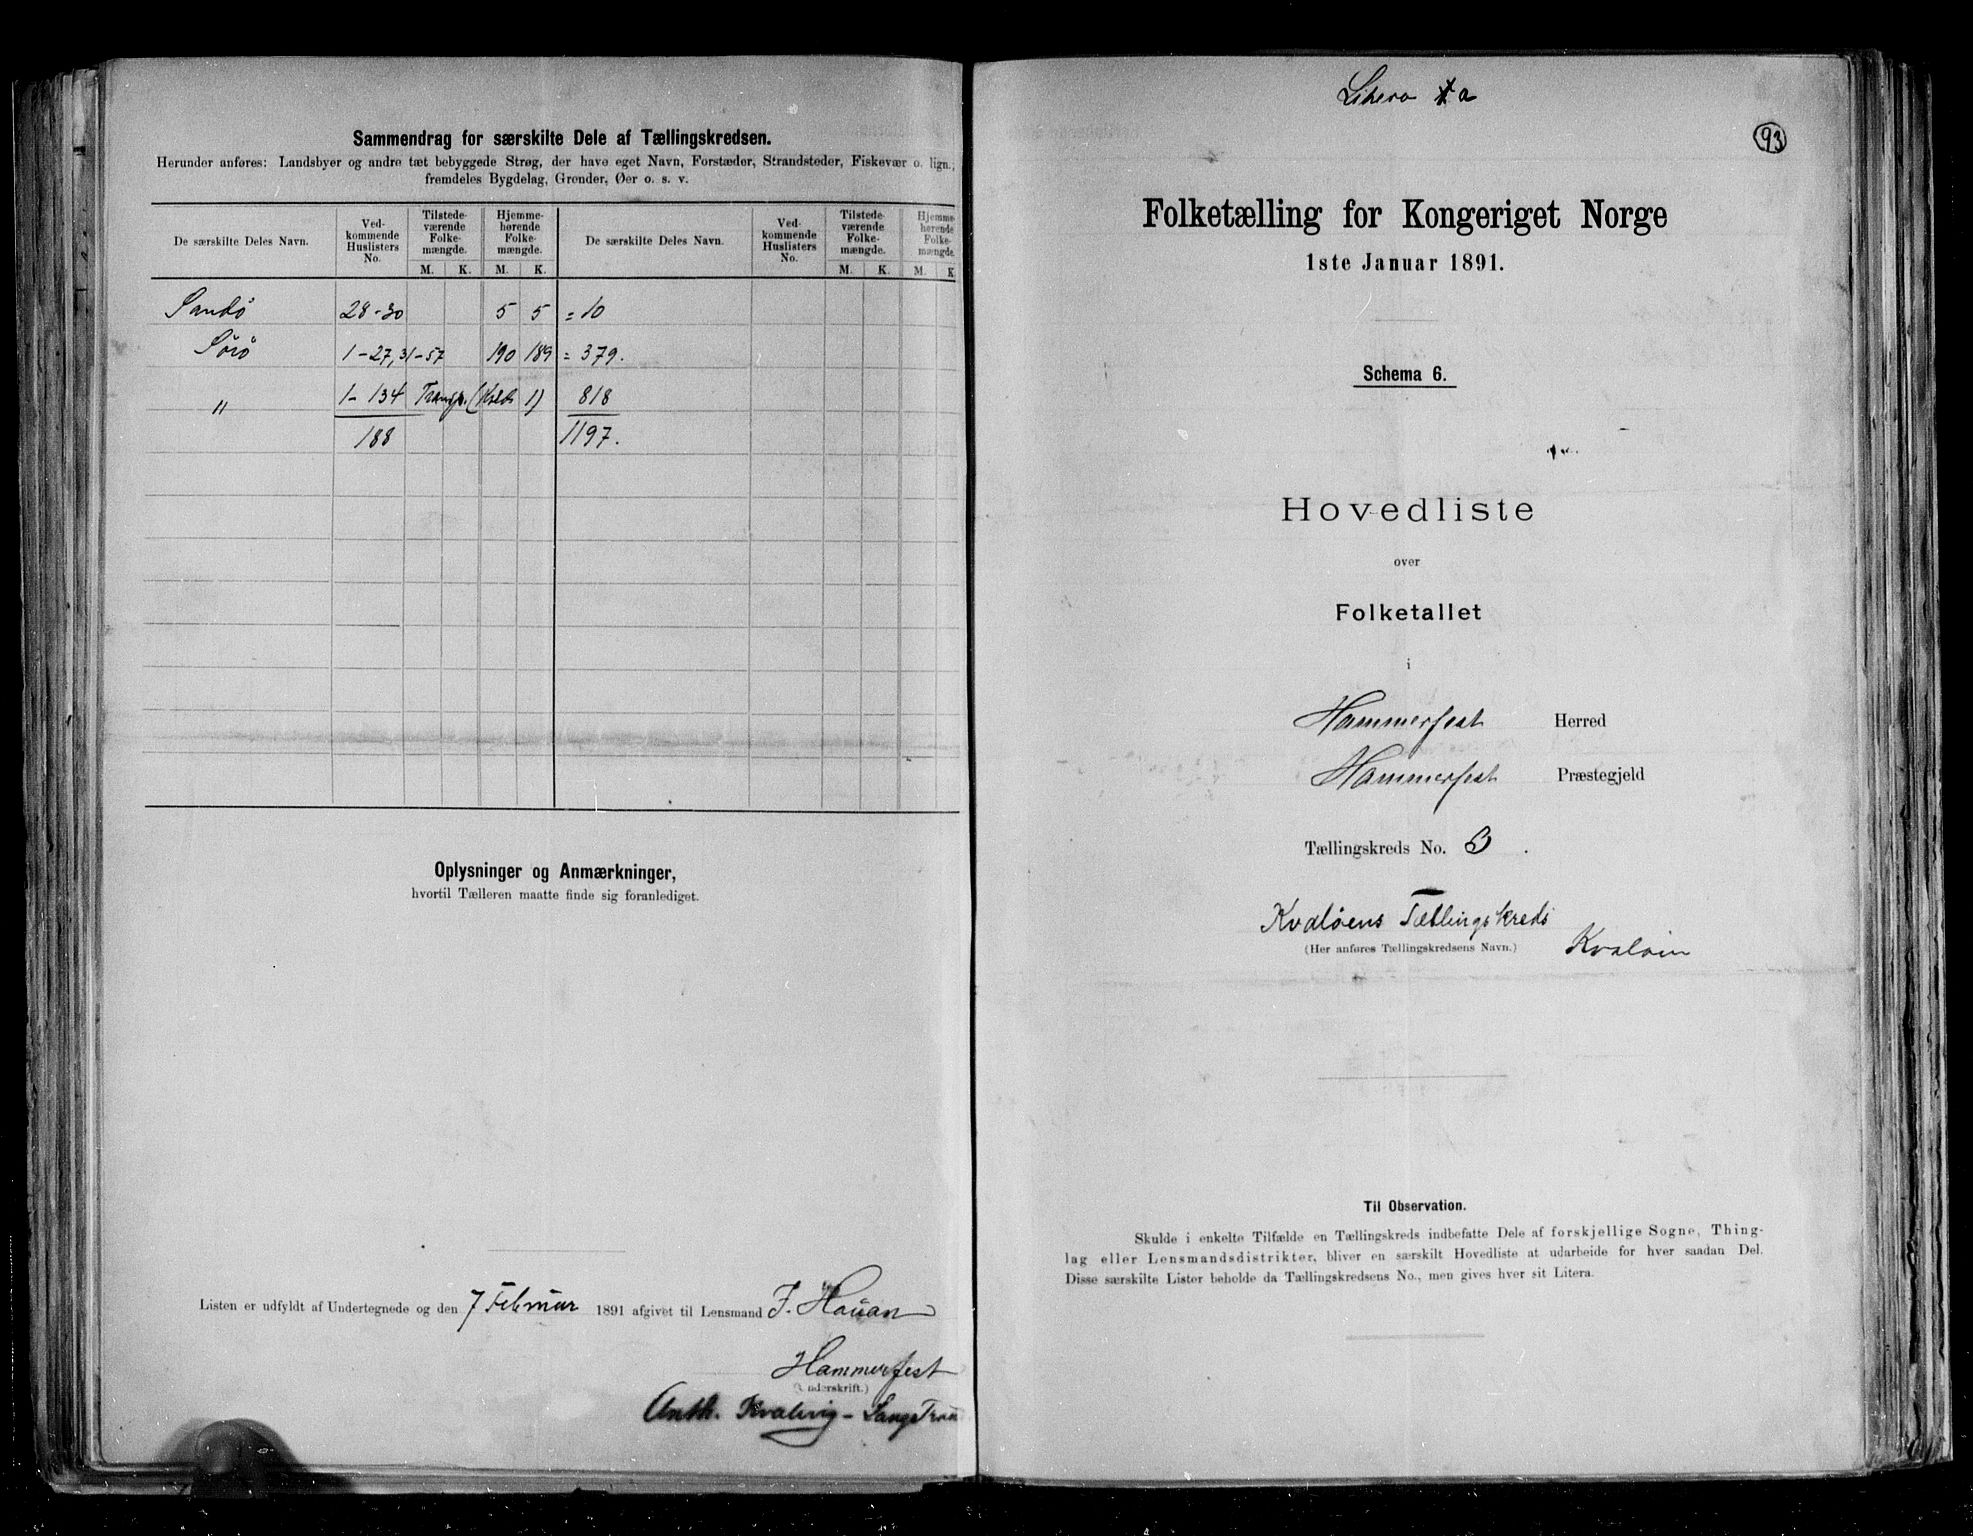 Sammendrag for særskilte Dele af Tællingskredsen.
Herunder anføres: Landsbyer og andre tæt bebyggede Strøg, der have eget Navn, Forstæder, Strandsteder, Fiskevær o. lign.,
fremdeles Bygdelag, Grender, Øer o. s. v.
De særskilte Deles Navn. Ved-kommende Huslisters No. Tilstede-værende Folke-mængde. Hjemme-hørende Folke-mængde. De særskilte Deles Navn. Ved-kommende Huslisters No. Tilstede-værende Folke-mængde. Hjemme-hørende Folke-mængde.
M. K. M. K. M. K. M. K
Sandö 28-30 5 5 = 10
Sörö 1-27, 31-57 190 189 = 379.
" 1-134 Transp. (Kreds 1) 818
188 1197.
Oplysninger og Anmærkninger,
hvortil Tælleren maatte finde sig foranlediget.
Listen er udfyldt af Undertegnede og den 7 Februar 1891 afgivet til Lensmand J. Hauan
Hammerfest
(Underskrift.)
Anth. Kvalvig -
Litera a
93
Folketælling for Kongeriget Norge
1ste Januar 1891.
Schema 6.
Hovedliste
over
Folketallet
i
Hammerfest Herred
Hammerfest Præstegjeld
Tællingskreds No. 3.
Kvalöens Tællingskreds
(Her anføres Tællingskredsens Navn.) Kvalöen
Til Observation.
Skulde i enkelte Tilfælde en Tællingskreds indbefatte Dele af forskjellige Sogne, Thing-
lag eller Lensmandsdistrikter, bliver en særskilt Hovedliste at udarbeide for hver saadan Del.
Disse særskilte Lister beholde da Tællingskredsens No., men gives hver sit Litera.